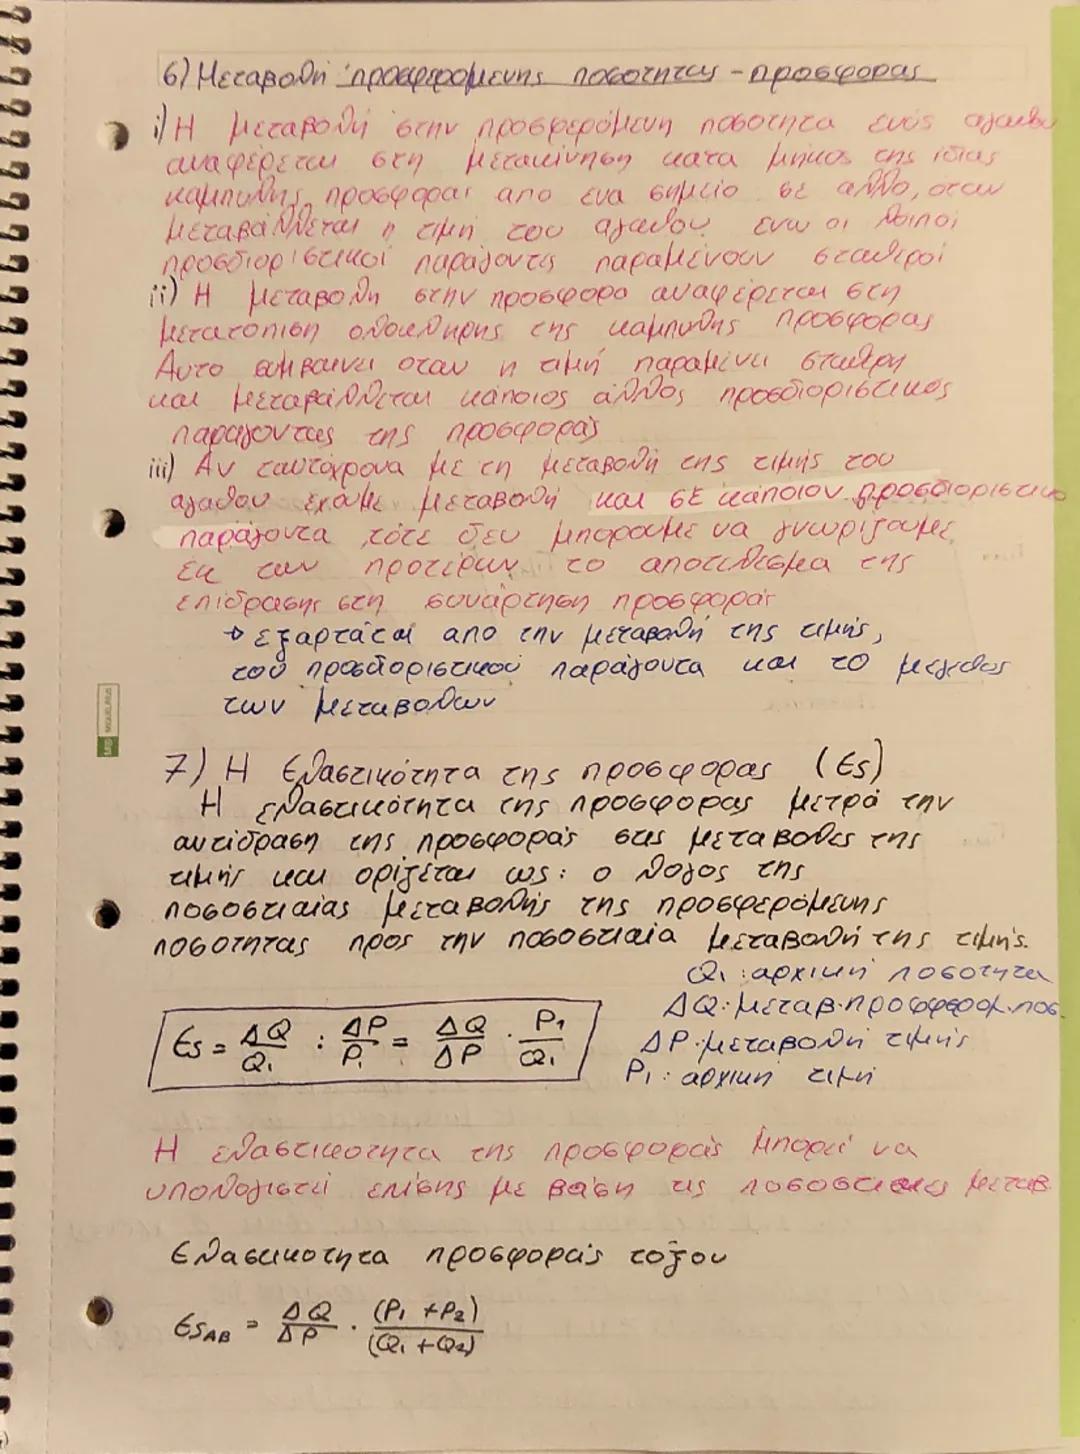 6) Μεταβολή προσφερόμενης ποσότητας - προσφοράς
i) Η μεταβολή στην προσφερόμενη ποσότητα ενός αγαθού
αναφέρεται στη μετακίνηση κατα μήκος της ίδιας
καμπύλης προσφοράς απο ενα σημείο σε αλλο, οταν
μεταβάλλεται η τιμή του αγαθού ενω οι λοιποί
προσδιοριστικοί παράγοντες παραμένουν σταθεροί
ii) Η μεταβολη στην προσφορα αναφέρεται στη
μετατοπιση ολοκληρης της καμπυλης προσφοράς
Αυτο συμβαινει οταν η τιμή παραμένει σταθερη
και μεταβάλλεται κάποιος άλλος προσδιοριστικος
παραγοντας της προσφοράς
iii) Αν ταυτόχρονα με τη μεταβολή της τιμής του
αγαθου εχουμε μεταβολή και σε κάποιον προσδιοριστικο
παράγοντα τότε δεν μπορουμε να γνωριζουμε
εκ των προτέρων το αποτελεσμα της
επίδρασης στη συνάρτηση προσφοράς
→ εξαρτάται απο την μεταβολή της τιμής,
του προσδιοριστικού παράγοντα και το μεγεθος
των μεταβολων
MIQUELRIUS
7) Η Ελαστικότητα της προσφορας (Es)
Η ελαστικότητα της προσφορας μετρά την
αντίδραση της προσφοράς στις μεταβολες της
τιμής και ορίζεται ως: ο λόγος της
ποσοστιαίας μεταβολής της προσφερόμενης
ποσοτητας προς την ποσοστιαία μεταβολή της τιμής.
Q₁: αρχική ποσοτητα
ΔQ: μεταβ. προσφερομ. ποσ.
Es = ΔQ/Q₁ : ΔP/P₁ = ΔQ/ΔP · P₁/Q₁
ΔP: μεταβολή τιμής
P₁: αρχικη τιμή
Η ελαστικοτητα της προσφοράς μπορεί να
υπολογιστεί επίσης με βάση τις ποσοστιαιες μεταβ.
Ελαστικοτητα προσφοράς τόξου
Es_AB = ΔQ/ΔP · (P₁ + P₂)/(Q₁ + Q₂)